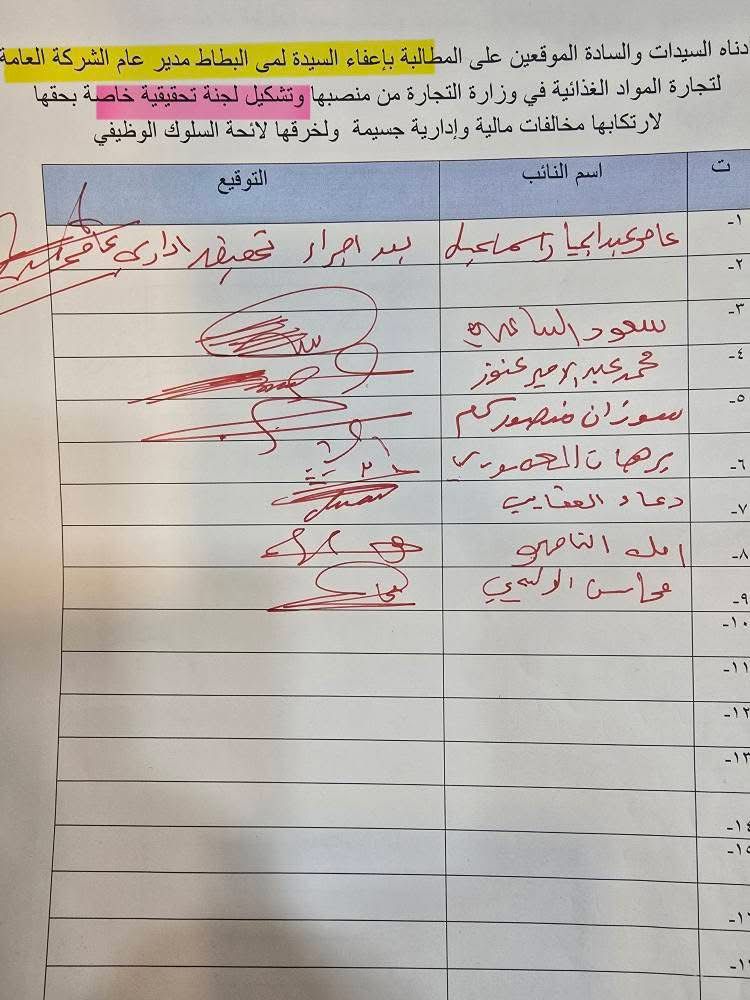 دناه السيدات والسادة الموقعين على المطالبة بإعفاء السيدة لمى البطاط مدير عام الشركة العامة
لتجارة المواد الغذائية في وزارة التجارة من منصبها وتشكيل لجنة تحقيقية خاصة بحقها
لارتكابها مخالفات مالية وإدارية جسيمة ولخرقها لائحة السلوك الوظيفي
ت اسم النائب التوقيع
١- عامر عبد الجبار اسماعيل بعد اجراء تحقيق اداري
٢-
٣- سعود الساعدي
٤- محمد عبد الامير عنوز
٥- سوزان منصور
٦- برهان
٧- دعاء
٨- امل
٩- محاسن
١٠-
١١-
١٢-
١٣-
١٤-
١٥-